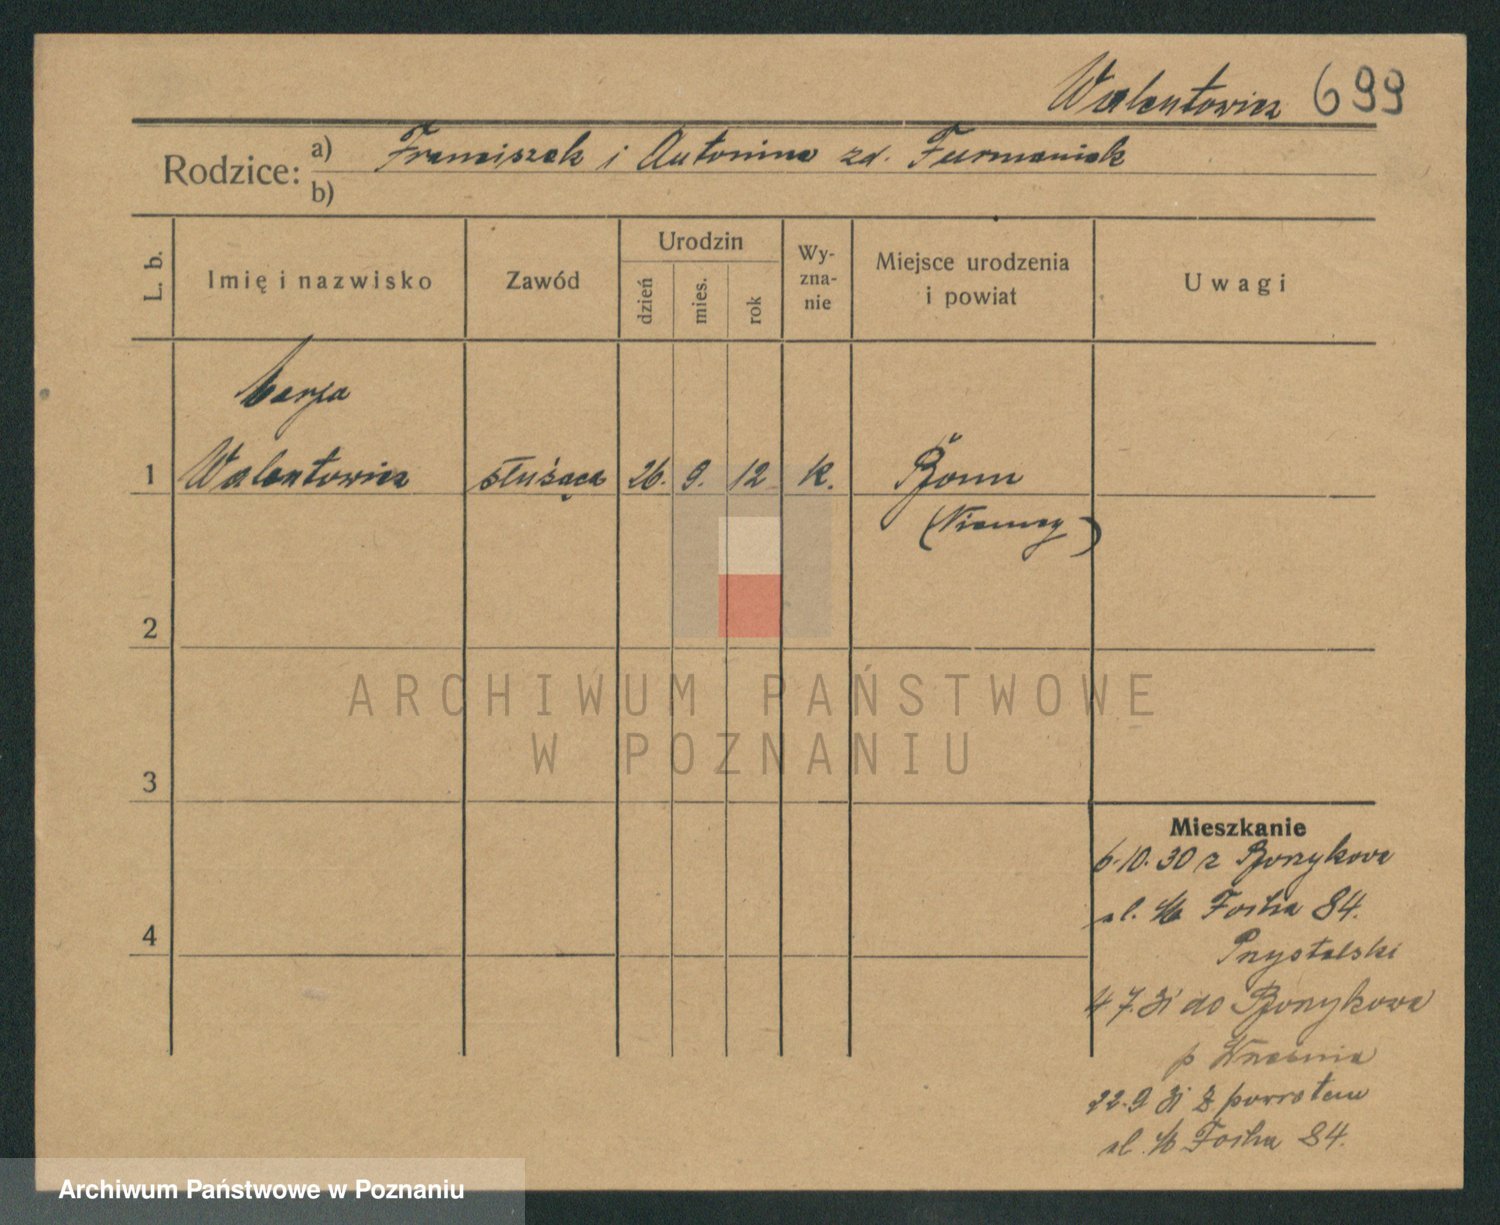 Walentowicz 699
Rodzice: a) Franciszek i Antonina zd. Furmaniak
b)
L. b.
Imię i nazwisko
Zawód
Urodzin
dzień
mies.
rok
Wy-
zna-
nie
Miejsce urodzenia
i powiat
Uwagi
Marja
1 Walentowicz służąca 26. 9. 12 k. Bonn
(Niemcy)
2
3
4
ARCHIWUM PAŃSTWOWE
W POZNANIU
Mieszkanie
6.10.30 z
al. M Focha 84.
Przystalski
4 7.31 do
p Września
22.9 31 z powrotem
al. M Focha 84.
Archiwum Państwowe w Poznaniu